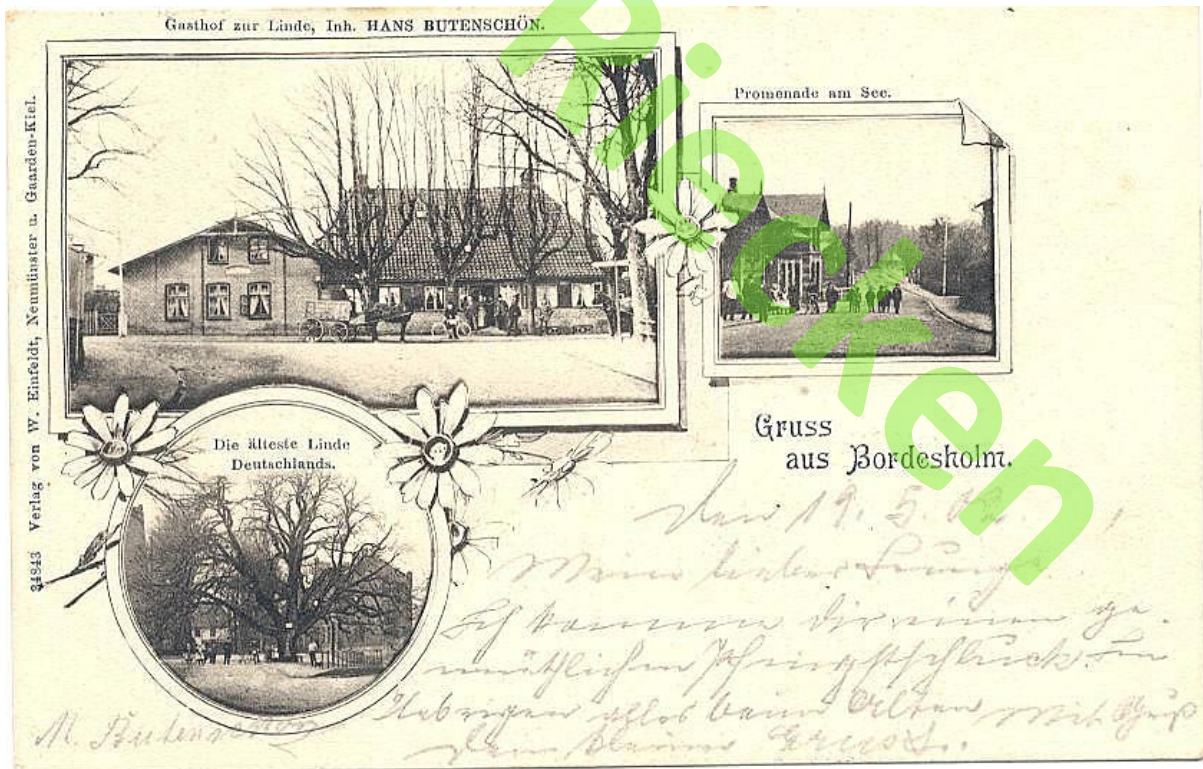 Gasthof zur Linde, Inh. HANS BUTENSCHÖN.
Promenade am See.
34843 Verlag von W. Einfeldt, Neumünster u. Gaarden-Kiel.
Die älteste Linde
Deutschlands.
Gruss
aus Bordesholm.
Den 19. 5. 02.
Mein lieber Junge.
Ich komme dir einen ge-
müthlichen Pfingstschluck. Im
Uebrigen alles beim Alten mit
Dein kleiner
M. Butenschön
Piecken